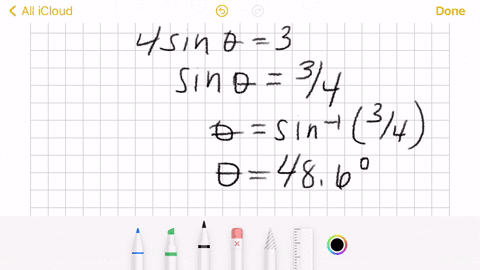 All iCloud Done
4 sin θ = 3
sin θ = 3/4
θ = sin⁻¹ (3/4)
θ = 48.6°